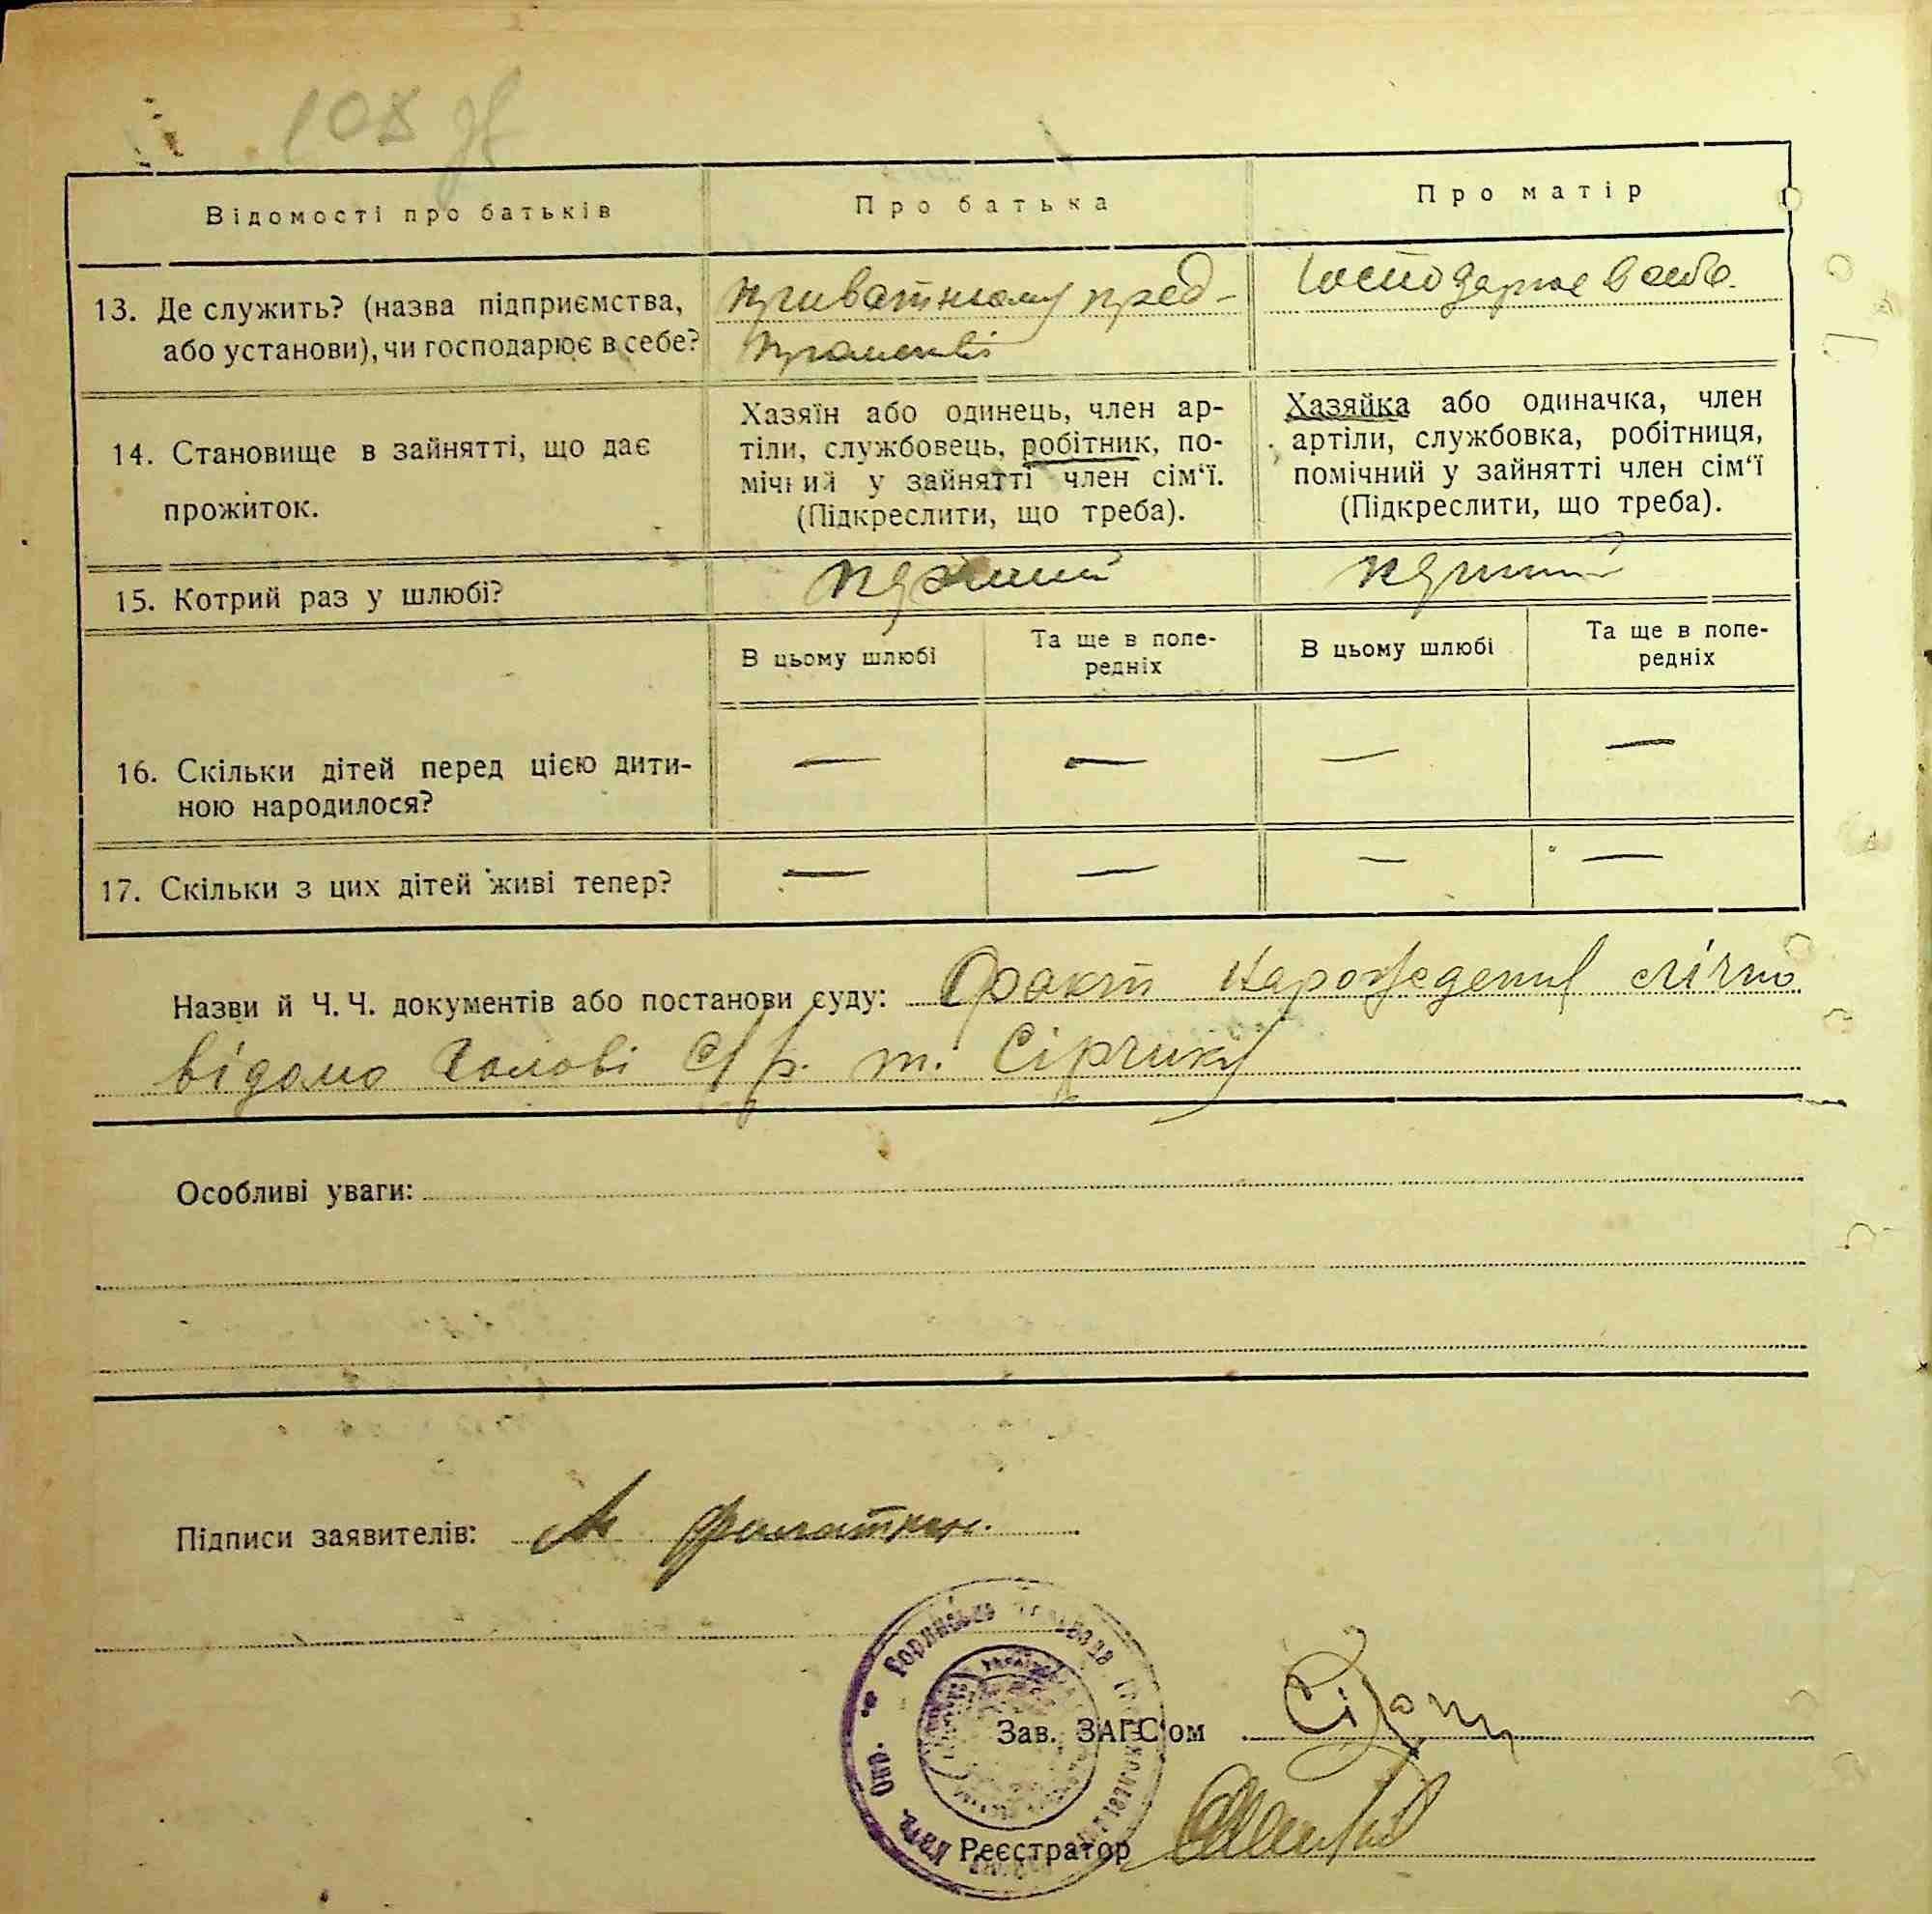 108
Відомості про батьків
Про батька
Про матір
13. Де служить? (назва підприємства,
або установи), чи господарює в себе?
приватному пред-
Господарює в себе.
14. Становище в зайнятті, що дає
прожиток.
Хазяїн або одинець, член ар-
тіли, службовець, робітник, по-
мічний у зайнятті член сім‘ї.
(Підкреслити, що треба).
Хазяйка або одиначка, член
артіли, службовка, робітниця,
помічний у зайнятті член сім‘ї
(Підкреслити, що треба).
15. Котрий раз у шлюбі?
В цьому шлюбі
Та ще в попе-
редніх
В цьому шлюбі
Та ще в попе-
редніх
16. Скільки дітей перед цією дити-
ною народилося?
— — — —
17. Скільки з цих дітей живі тепер?
— — — —
Назви й Ч. Ч. документів або постанови суду: Факт
відомо Голові С/р. т. Сірчику
Особливі уваги:
Підписи заявителів:
Зав. ЗАГС‘ом
Реєстратор